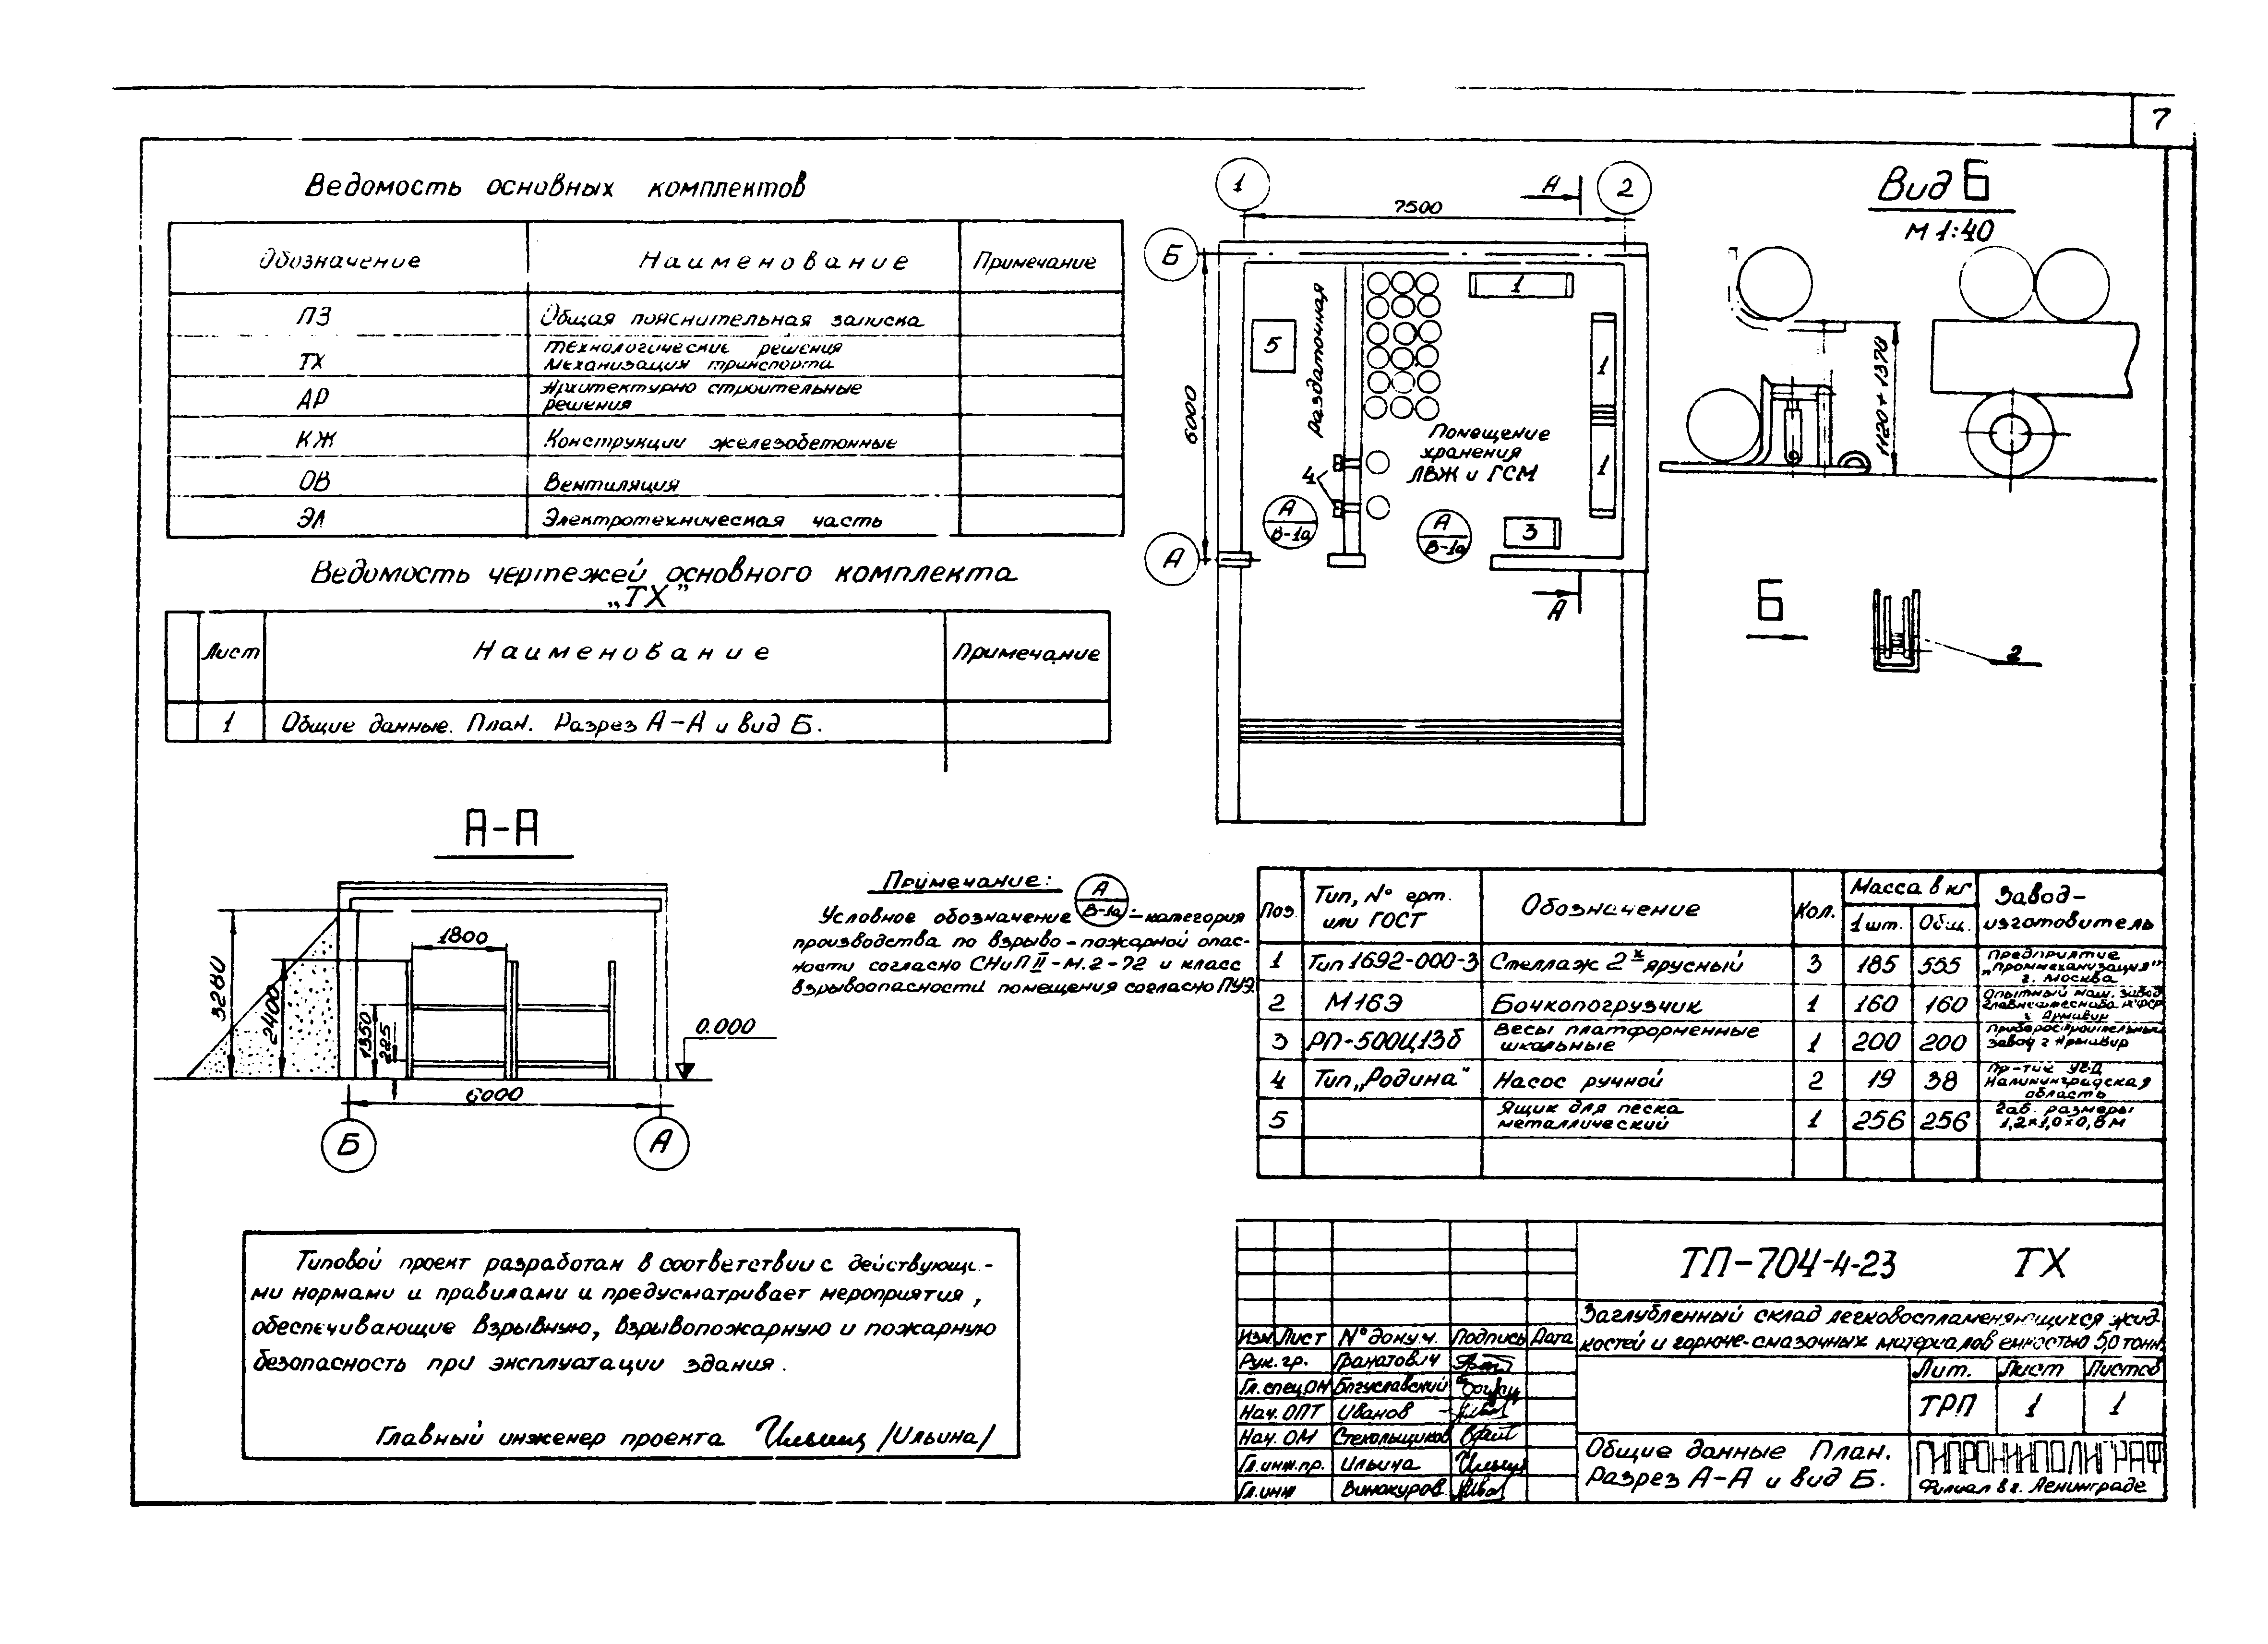 7
Ведомость основных комплектов
Обозначение Наименование Примечание
ПЗ Общая пояснительная записка
ТХ Технологические решения
Механизация транспорта
АР Архитектурно строительные
решения
КЖ Конструкции железобетонные
ОВ Вентиляция
ЭЛ Электротехническая часть
Ведомость чертежей основного комплекта
„ТХ”
Лист Наименование Примечание
1 Общие данные. План. Разрез А-А и вид Б.
1 2
А
7500
Б
А
6000
5
Раздаточная
1
1
1
Помещение
хранения
ЛВЖ и ГСМ
4
А
В-1а
А
В-1а
3
А
Вид Б
М 1:40
1120÷1370
Б
2
А-А
3280
2400
1350
225
1800
0.000
6000
Б А
Примечание:
Условное обозначение А/В-1а - категория
производства по взрыво-пожарной опас-
ности согласно СНиП II-М.2-72 и класс
взрывоопасности помещения согласно ПУЭ.
Поз. Тип, № ерт. или ГОСТ Обозначение Кол. Масса в кг Завод-
1 шт. Общ. изготовитель
1 Тип 1692-000-3 Стеллаж 2х ярусный 3 185 555 Предприятие „Проммеханизация" г. Москва
2 М16Э Бочкопогрузчик 1 160 160 Опытный маш. завод г. Армавир
3 РП-500Ц13б Весы платформенные шкальные 1 200 200 Приборостроительный завод г Армавир
4 Тип „Родина" Насос ручной 2 19 38 Пр-тие Калининградская область
5 Ящик для песка металлический 1 256 256 Габ. размеры 1,2×1,0×0,8 м
Типовой проект разработан в соответствии с действующи-
ми нормами и правилами и предусматривает мероприятия,
обеспечивающие взрывную, взрывопожарную и пожарную
безопасность при эксплуатации здания.
Главный инженер проекта /Ильина/
ТП-704-4-23 ТХ
Заглубленный склад легковоспламеняющихся жид-
костей и горюче-смазочных материалов емкостью 5,0 тонн.
Изм. Лист № докум. Подпись Дата
Рук. гр. Гранатович
Гл. спец.ОМ Богуславский
Нач. ОПТ Иванов
Нач. ОМ Стекольщиков
Гл. инж. пр. Ильина
Гл. инж Винокуров
Лит. Лист Листов
ТРП 1 1
Общие данные План.
Разрез А-А и вид Б.
ГИПРОНИИПОЛИГРАФ
Филиал в г. Ленинграде